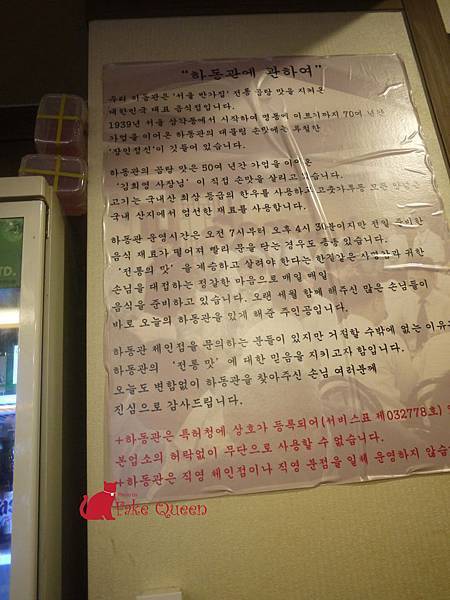 "하동관에 관하여"
우리 하동관은 '서울 반가집' 전통 곰탕 맛을 지켜온
대한민국 대표 음식점입니다.
1939년 서울 삼각동에서 시작하여 명동에 이르기까지 70여 년간
가업을 이어온 하동관의 대물림 손맛에는 투철한
'장인정신'이 깃들어 있습니다.
하동관의 곰탕 맛은 50여 년간 가업을 이어온
'김희영 사장님' 이 직접 손맛을 살리고 있습니다.
고기는 국내산 최상 등급의 한우를 사용하고 고춧가루등 모든
국내 산지에서 엄선한 재료를 사용합니다.
하동관 운영시간은 오전 7시부터 오후 4시 30분이지만 전일 준비한
음식 재료가 떨어져 빨리 문을 닫는 경우도 종종 있습니다.
'전통의 맛' 을 계승하고 살려야 한다는 한결같은 사명감과 귀한
손님을 대접하는 정갈한 마음으로 매일 매일
음식을 준비하고 있습니다. 오랜 세월 함께 해주신 많은 손님들이
바로 오늘의 하동관을 있게 해준 주인공입니다.
하동관 체인점을 문의하는 분들이 있지만 거절할 수밖에 없는 이유는
하동관의 '전통 맛' 에 대한 믿음을 지키고자 함입니다.
오늘도 변함없이 하동관을 찾아주신 손님 여러분께
진심으로 감사드립니다.
+하동관은 특허청에 상호가 등록되어(서비스표 제032778호)
본업소의 허락없이 무단으로 사용할 수 없습니다.
+하동관은 직영 체인점이나 직영 분점을 일체 운영하지 않습
Fake Queen